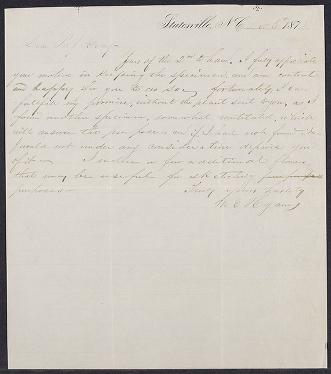 Statesville, N.C. 187
Dear Prof. Gray
Yours of the 2nd I have. I fully appreciate
your motive in keeping the specimen and am content
am happy for you to do so. Fortunately I can
fulfil my promise, without the plant sent you, as I
found another specimen, somewhat mutilated, which
will answer the purpose even if I had not found it. I
would not under any consideration deprive you
of it. I enclose a few additional flowers
that may be useful for sketching
purposes.
Truly yours
M. E. Hyams